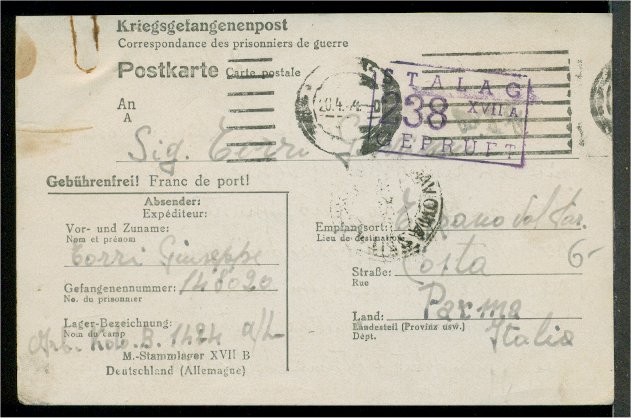 Kriegsgefangenenpost
Correspondance des prisonniers de guerre
Postkarte Carte postale
STALAG
238 XVII A
GEPRÜFT
20.4.
An
A
Sig. Torri
Gebührenfrei! Franc de port!
Absender:
Expéditeur:
Vor- und Zuname:
Nom et prénom
Torri Giuseppe
Gefangenennummer: 148020
No. du prisonnier
Lager-Bezeichnung:
Nom du camp
Arb. Kdo. B. 1424 a/L
M.-Stammlager XVII B
Deutschland (Allemagne)
Empfangsort:
Lieu de destination
Straße: Costa
Rue
6-
Land: Parma
Landesteil (Provinz usw.)
Dépt.
Italia